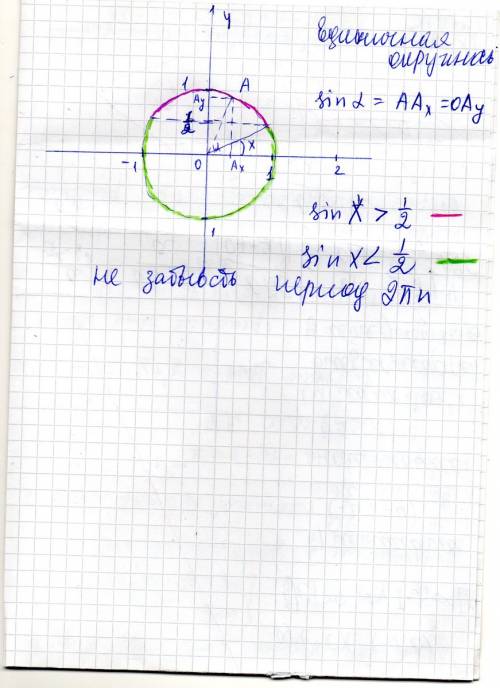 y
Единичная
окружность
1
A
Ay
sin α = AAx = OAy
1/2
α
x
-1
0
Ax
1
2
1
sin x > 1/2
sin x < 1/2
не забывать период 2πn